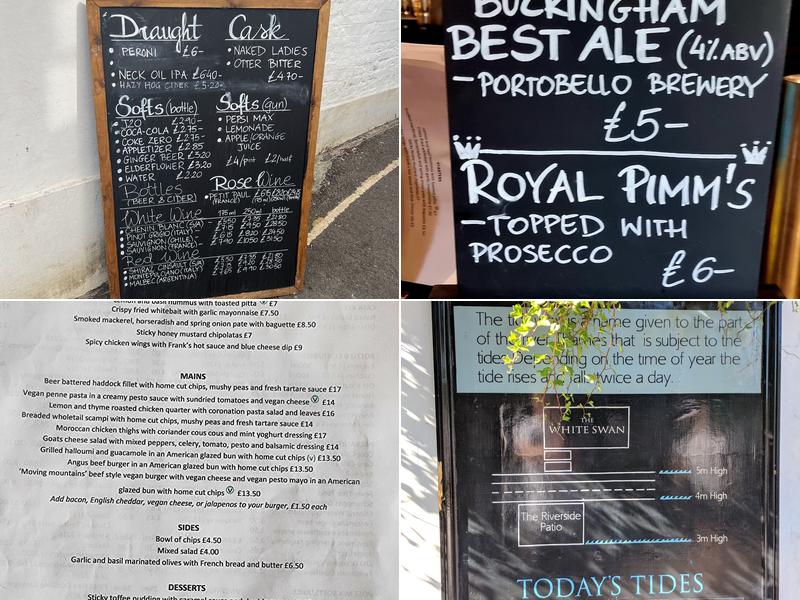 Draught
• PERONI £6-
NECK OIL IPA £6.40-
HAZY HOG CIDER £5.20-
Cask
• NAKED LADIES
• OTTER BITTER
£4.70-
Softs (bottle)
• J2O £2.90-
• COCA-COLA £2.75-
• COKE ZERO £2.75-
• APPLETIZER £2.85
• GINGER BEER £3.20
• ELDERFLOWER £3.20
• WATER £2.20
Softs (gun)
• PEPSI MAX
• LEMONADE
• APPLE/ORANGE
JUICE
£4/pint £2/half
Bottles
(BEER & CIDER)
Rosé Wine
• PETIT PAUL
(FRANCE)
White Wine 175ml 250ml bottle
• CHENIN BLANC (S/A)
• PINOT GRIGIO (ITALY)
• SAUVIGNON (CHILE)
• SAUVIGNON (FRANCE)
Red Wine
• SHIRAZ CINSAULT (S/A)
• MONTEPULCIANO (ITALY)
• MALBEC (ARGENTINA)
BUCKINGHAM
BEST ALE (4% ABV)
- PORTOBELLO BREWERY
£5-
ROYAL PIMM'S
- TOPPED WITH
PROSECCO
£6-
Lemon and basil hummus with toasted pitta Ⓥ £7
Crispy fried whitebait with garlic mayonnaise £7.50
Smoked mackerel, horseradish and spring onion pate with baguette £8.50
Sticky honey mustard chipolatas £7
Spicy chicken wings with Frank's hot sauce and blue cheese dip £9
MAINS
Beer battered haddock fillet with home cut chips, mushy peas and fresh tartare sauce £17
Vegan penne pasta in a creamy pesto sauce with sundried tomatoes and vegan cheese Ⓥ £14
Lemon and thyme roasted chicken quarter with coronation pasta salad and leaves £16
Breaded wholetail scampi with home cut chips, mushy peas and fresh tartare sauce £14
Moroccan chicken thighs with coriander cous cous and mint yoghurt dressing £17
Goats cheese salad with mixed peppers, celery, tomato, pesto and balsamic dressing £14
Grilled halloumi and guacamole in an American glazed bun with home cut chips (v) £13.50
Angus beef burger in an American glazed bun with home cut chips £13.50
'Moving mountains' beef style vegan burger with vegan cheese and vegan pesto mayo in an American
glazed bun with home cut chips Ⓥ £13.50
Add bacon, English cheddar, vegan cheese, or jalapenos to your burger, £1.50 each
SIDES
Bowl of chips £4.50
Mixed salad £4.00
Garlic and basil marinated olives with French bread and butter £6.50
DESSERTS
Sticky toffee pudding with caramel sauce
The is a name given to the part
of the river Thames that is subject to the
tides. Depending on the time of year the
tide rises and falls twice a day.
THE
WHITE SWAN
5m High
4m High
The Riverside
Patio
3m High
TODAY'S TIDES